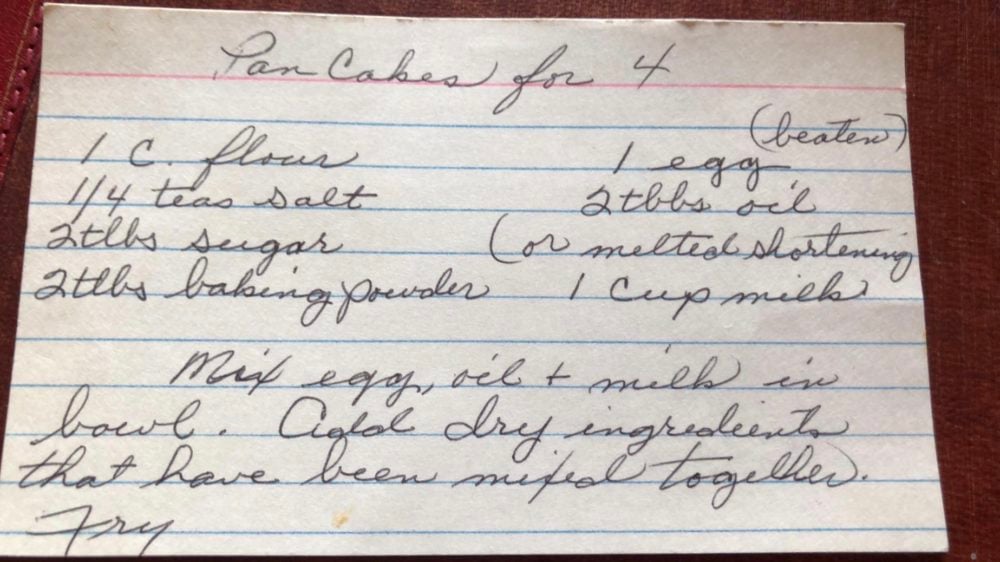 Pan Cakes for 4
(beaten)
1 C. flour 1 egg
1/4 teas salt 2 tbbs oil
2 tlbs sugar (or melted shortening
2 tlbs baking powder 1 cup milk
Mix egg, oil + milk in
bowl. Add dry ingredients
that have been mixed together.
Fry